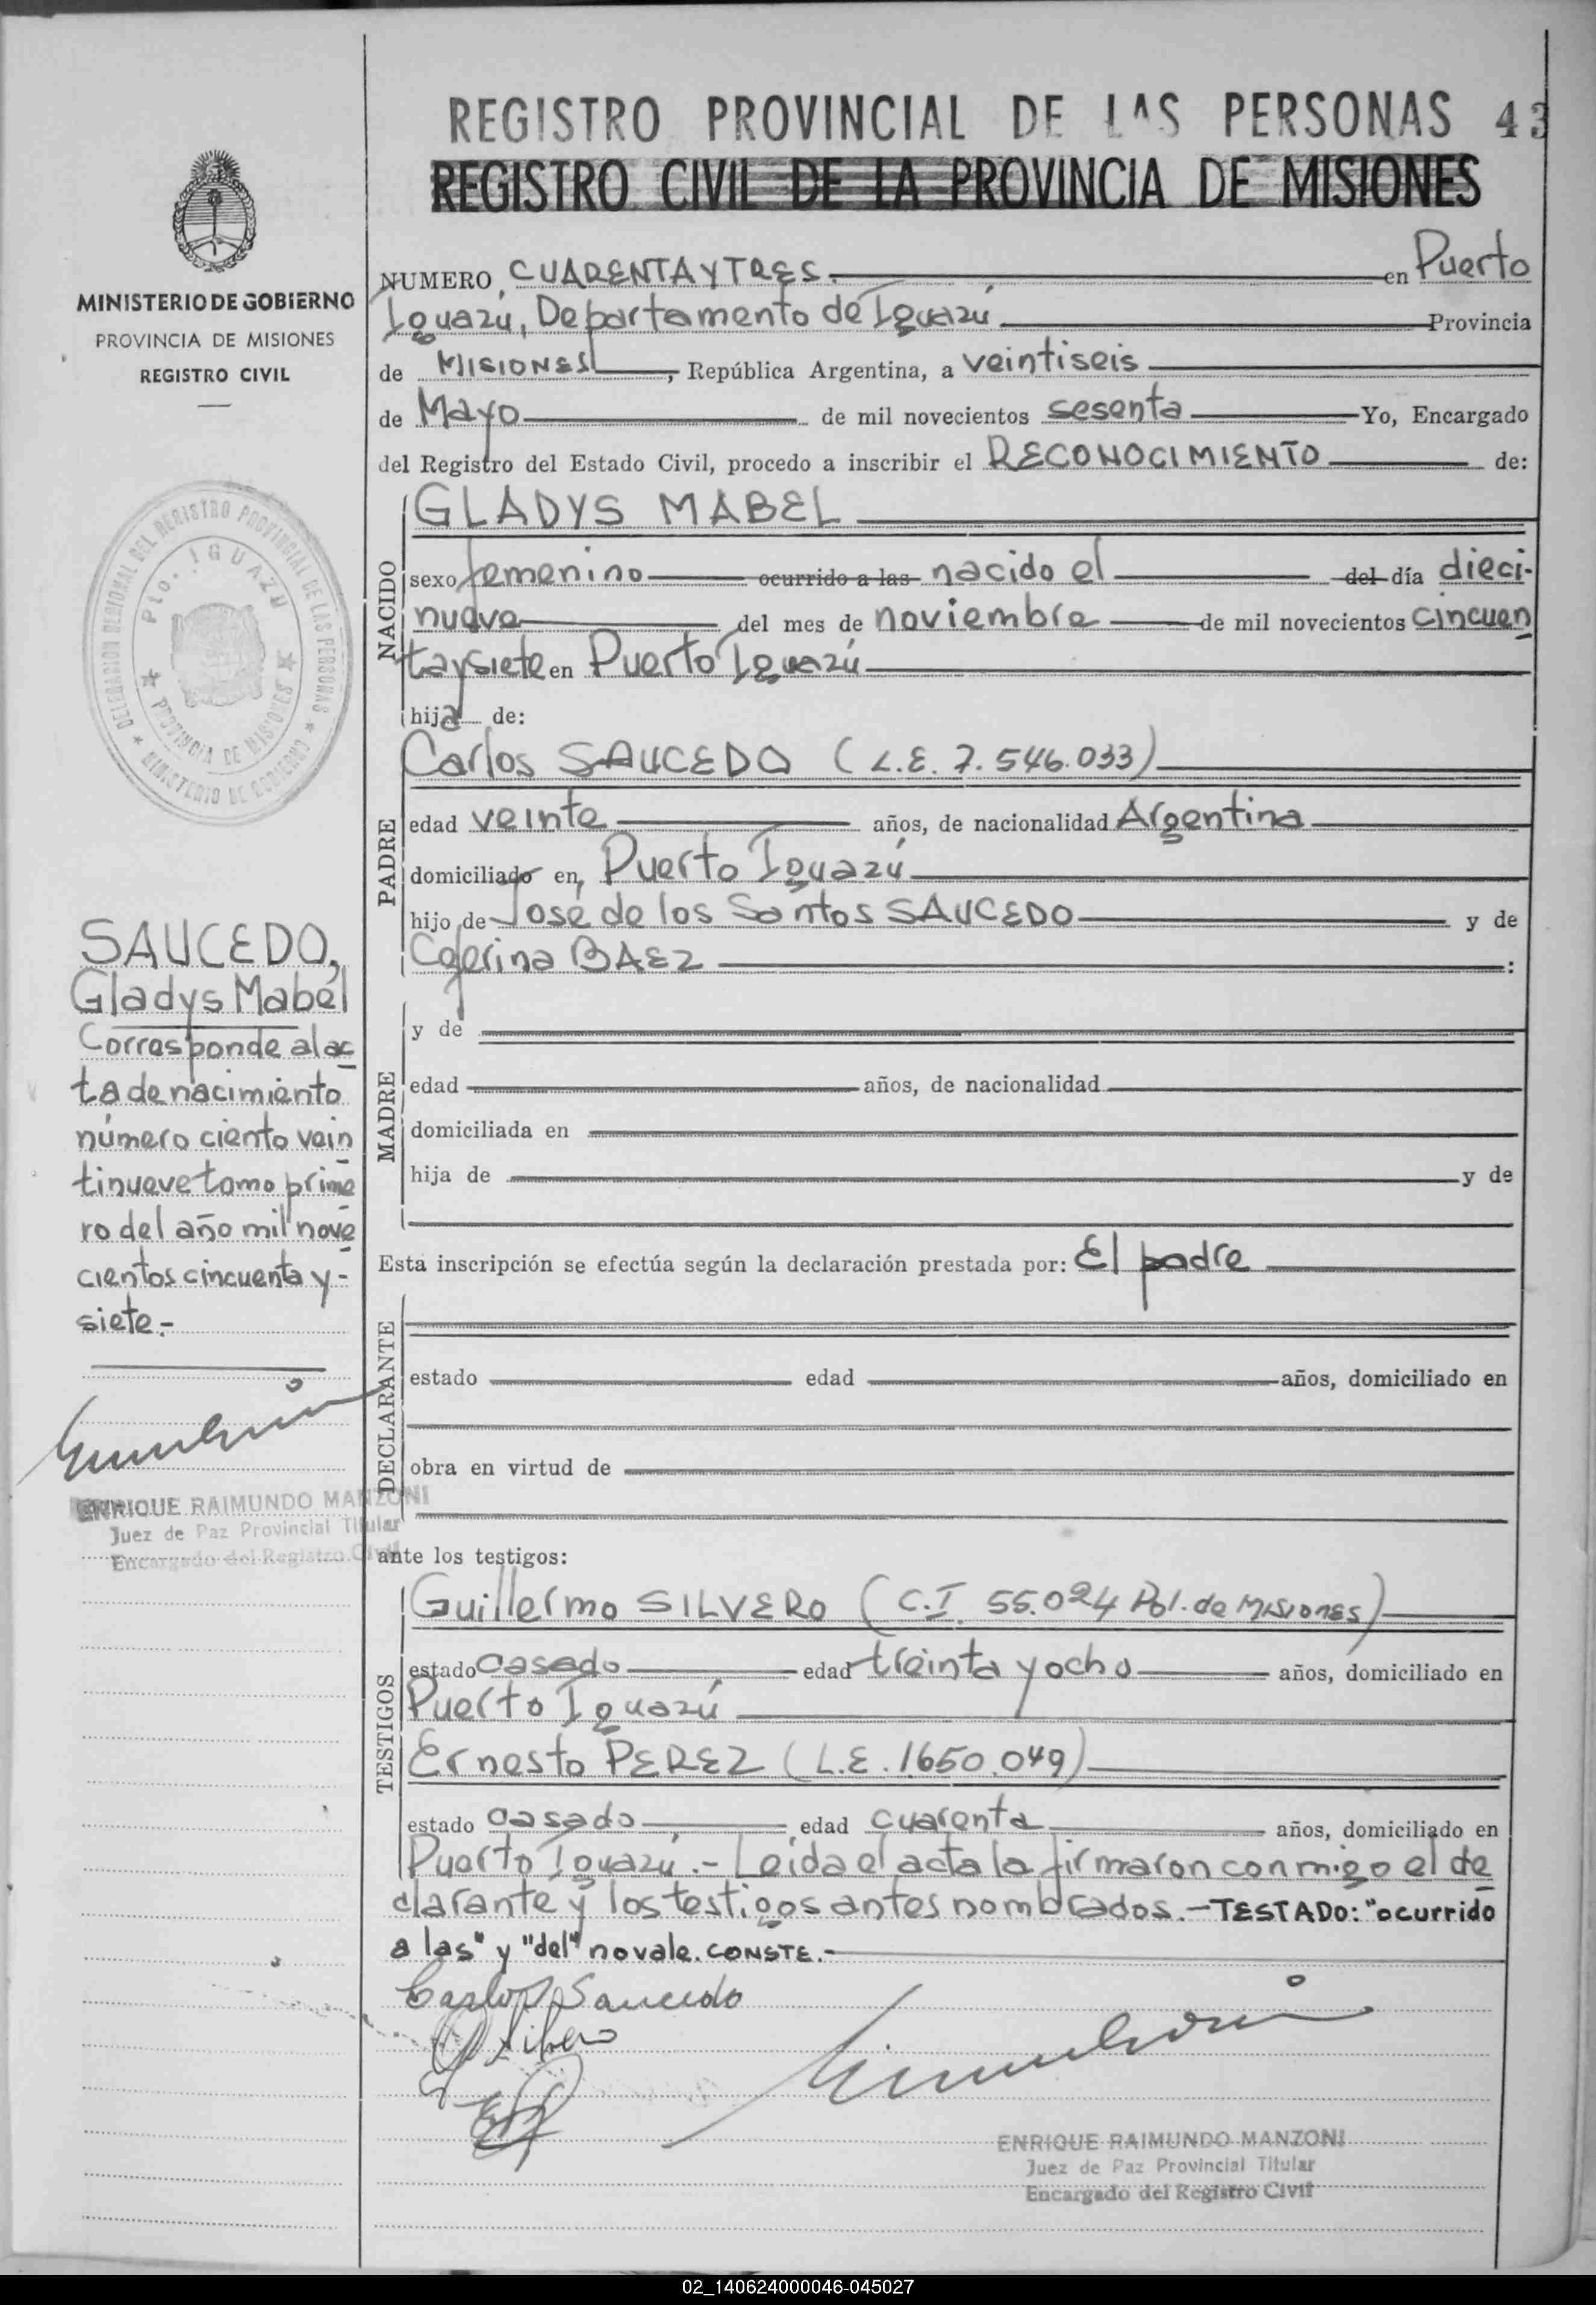 REGISTRO PROVINCIAL DE LAS PERSONAS 43
REGISTRO CIVIL DE LA PROVINCIA DE MISIONES
MINISTERIO DE GOBIERNO
PROVINCIA DE MISIONES
REGISTRO CIVIL
DELEGACION REGIONAL DEL REGISTRO PROVINCIAL DE LAS PERSONAS
Pto. IGUAZU
PROVINCIA DE MISIONES
MINISTERIO DE GOBIERNO
SAUCEDO,
Gladys Mabel
Corresponde al ac
ta de nacimiento
número ciento vein
tinueve tomo prime
ro del año mil nove
cientos cincuenta y-
siete.-
ENRIQUE RAIMUNDO MANZONI
Juez de Paz Provincial Titular
Encargado del Registro Civil
NUMERO CUARENTA Y TRES. en Puerto
Iguazú, Departamento de Iguazú Provincia
de MISIONES, República Argentina, a veintiseis
de Mayo de mil novecientos sesenta Yo, Encargado
del Registro del Estado Civil, procedo a inscribir el RECONOCIMIENTO de:
NACIDO
GLADYS MABEL
sexo femenino ocurrido a las nacido el del día dieci-
nueve del mes de noviembre de mil novecientos cincuen
taysiete en Puerto Iguazú
hija de:
PADRE
Carlos SAUCEDO (L.E. 7.546.033)
edad veinte años, de nacionalidad Argentina
domiciliado en Puerto Iguazú
hijo de José de los Santos SAUCEDO y de
Ceferina BAEZ :
MADRE
y de
edad años, de nacionalidad
domiciliada en
hija de y de
Esta inscripción se efectúa según la declaración prestada por: El padre
DECLARANTE
estado edad años, domiciliado en
obra en virtud de
ante los testigos:
TESTIGOS
Guillermo SILVERO (C.I. 55.024 Pol. de Misiones)
estado casado edad treinta y ocho años, domiciliado en
Puerto Iguazú
Ernesto PEREZ (L.E. 1.650.049)
estado casado edad cuarenta años, domiciliado en
Puerto Iguazú.- Leída el acta la firmaron conmigo el de
clarante y los testigos antes nombrados.- TESTADO: "ocurrido
a las" y "del" no vale. CONSTE.-
Carlos Saucedo
ENRIQUE RAIMUNDO MANZONI
Juez de Paz Provincial Titular
Encargado del Registro Civil
02_140624000046-045027